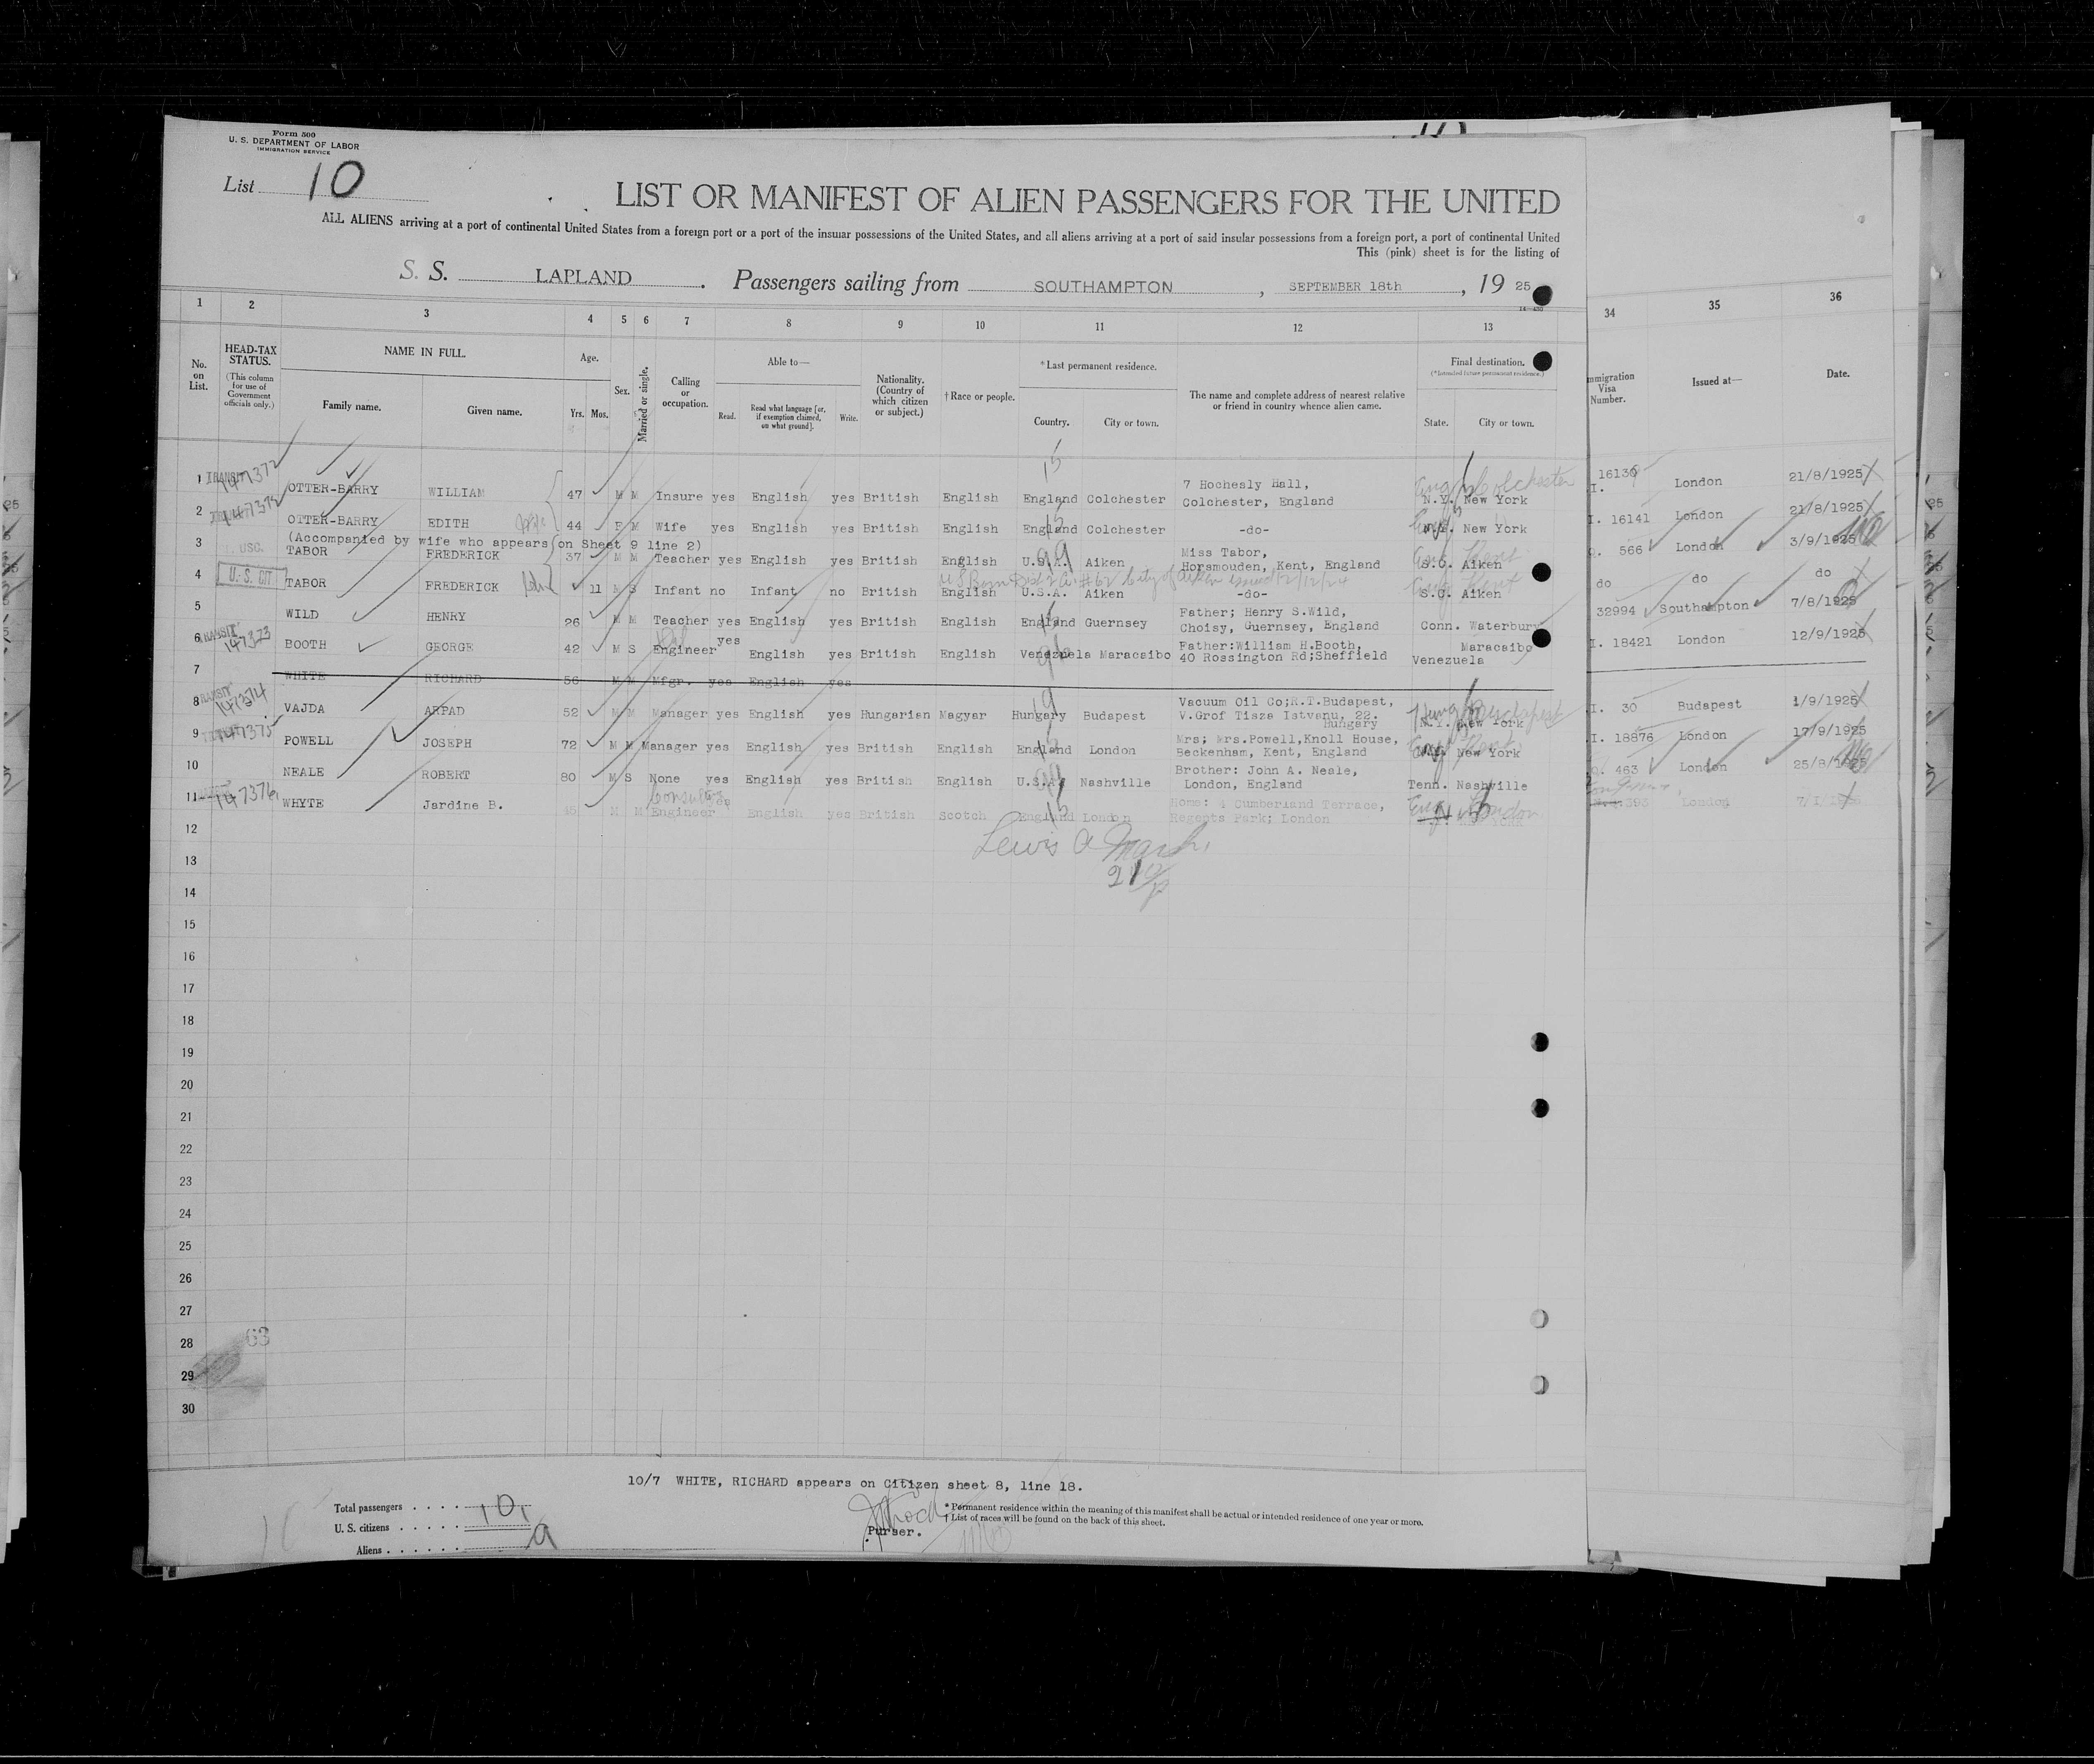 Form 500
U. S. DEPARTMENT OF LABOR
IMMIGRATION SERVICE
List 10
LIST OR MANIFEST OF ALIEN PASSENGERS FOR THE UNITED
ALL ALIENS arriving at a port of continental United States from a foreign port or a port of the insular possessions of the United States, and all aliens arriving at a port of said insular possessions from a foreign port, a port of continental United
This (pink) sheet is for the listing of
S. S. LAPLAND. Passengers sailing from SOUTHAMPTON, SEPTEMBER 18th, 19 25
1 2 3 4 5 6 7 8 9 10 11 12 13 34 35 36
No. on List.
HEAD-TAX STATUS.
(This column for use of Government officials only.)
NAME IN FULL.
Family name. Given name.
Age.
Yrs. Mos.
Sex.
Married or single.
Calling or occupation.
Able to—
Read. Read what language [or, if exemption claimed, on what ground]. Write.
Nationality. (Country of which citizen or subject.)
†Race or people.
*Last permanent residence.
Country. City or town.
The name and complete address of nearest relative or friend in country whence alien came.
Final destination.
(*Intended future permanent residence.)
State. City or town.
Immigration Visa Number.
Issued at—
Date.
1 TRANSIT 147372 OTTER-BARRY WILLIAM 47 M M Insure yes English yes British English England Colchester 7 Hochesly Hall, Colchester, England N.Y. New York Colchester I. 16136 London 21/8/1925
2 147372 OTTER-BARRY EDITH Wife 44 F M Wife yes English yes British English England Colchester -do- New York I. 16141 London 21/8/1925
(Accompanied by wife who appears on Sheet 9 line 2)
3 USC. TABOR FREDERICK 37 M M Teacher yes English yes British English U.S.A. Aiken Miss Tabor, Horsmouden, Kent, England S.C. Aiken Kent 566 London 3/9/1925
4 U.S. CIT TABOR FREDERICK 11 M S Infant no Infant no British English U.S.A. Aiken -do- S.C. Aiken Kent do do do
5 WILD HENRY 26 M M Teacher yes English yes British English England Guernsey Father; Henry S.Wild, Choisy, Guernsey, England Conn. Waterbury 32994 Southampton 7/8/1925
6 TRANSIT 147373 BOOTH GEORGE 42 M S Engineer yes English yes British English Venezuela Maracaibo Father:William H.Booth, 40 Rossington Rd;Sheffield Venezuela Maracaibo I. 18421 London 12/9/1925
7 WHITE RICHARD 56 M M Mfgr. yes English yes
8 TRANSIT 147374 VAJDA ARPAD 52 M M Manager yes English yes Hungarian Magyar Hungary Budapest Vacuum Oil Co;R.T.Budapest, V.Grof Tisza Istvanu, 22. Hungary N.Y. New York Hung Budapest I. 30 Budapest 1/9/1925
9 147375 POWELL JOSEPH 72 M M Manager yes English yes British English England London Mrs; Mrs.Powell,Knoll House, Beckenham, Kent, England New York I. 18876 London 17/9/1925
10 NEALE ROBERT 80 M S None yes English yes British English U.S.A. Nashville Brother: John A. Neale, London, England Tenn. Nashville 463 London 25/8/1925
11 147376 WHYTE Jardine B. M M Consulting Engineer yes English yes British Scotch England London Home: 4 Cumberland Terrace, Regents Park; London Eng London 395 London
12
Lewis A
13
14
15
16
17
18
19
20
21
22
23
24
25
26
27
28 63
29
30
10/7 WHITE, RICHARD appears on Citizen sheet 8, line 18.
Total passengers . . . . 10
U. S. citizens . . . . . 1
Aliens . . . . . . 9
Purser.
* Permanent residence within the meaning of this manifest shall be actual or intended residence of one year or more.
† List of races will be found on the back of this sheet.